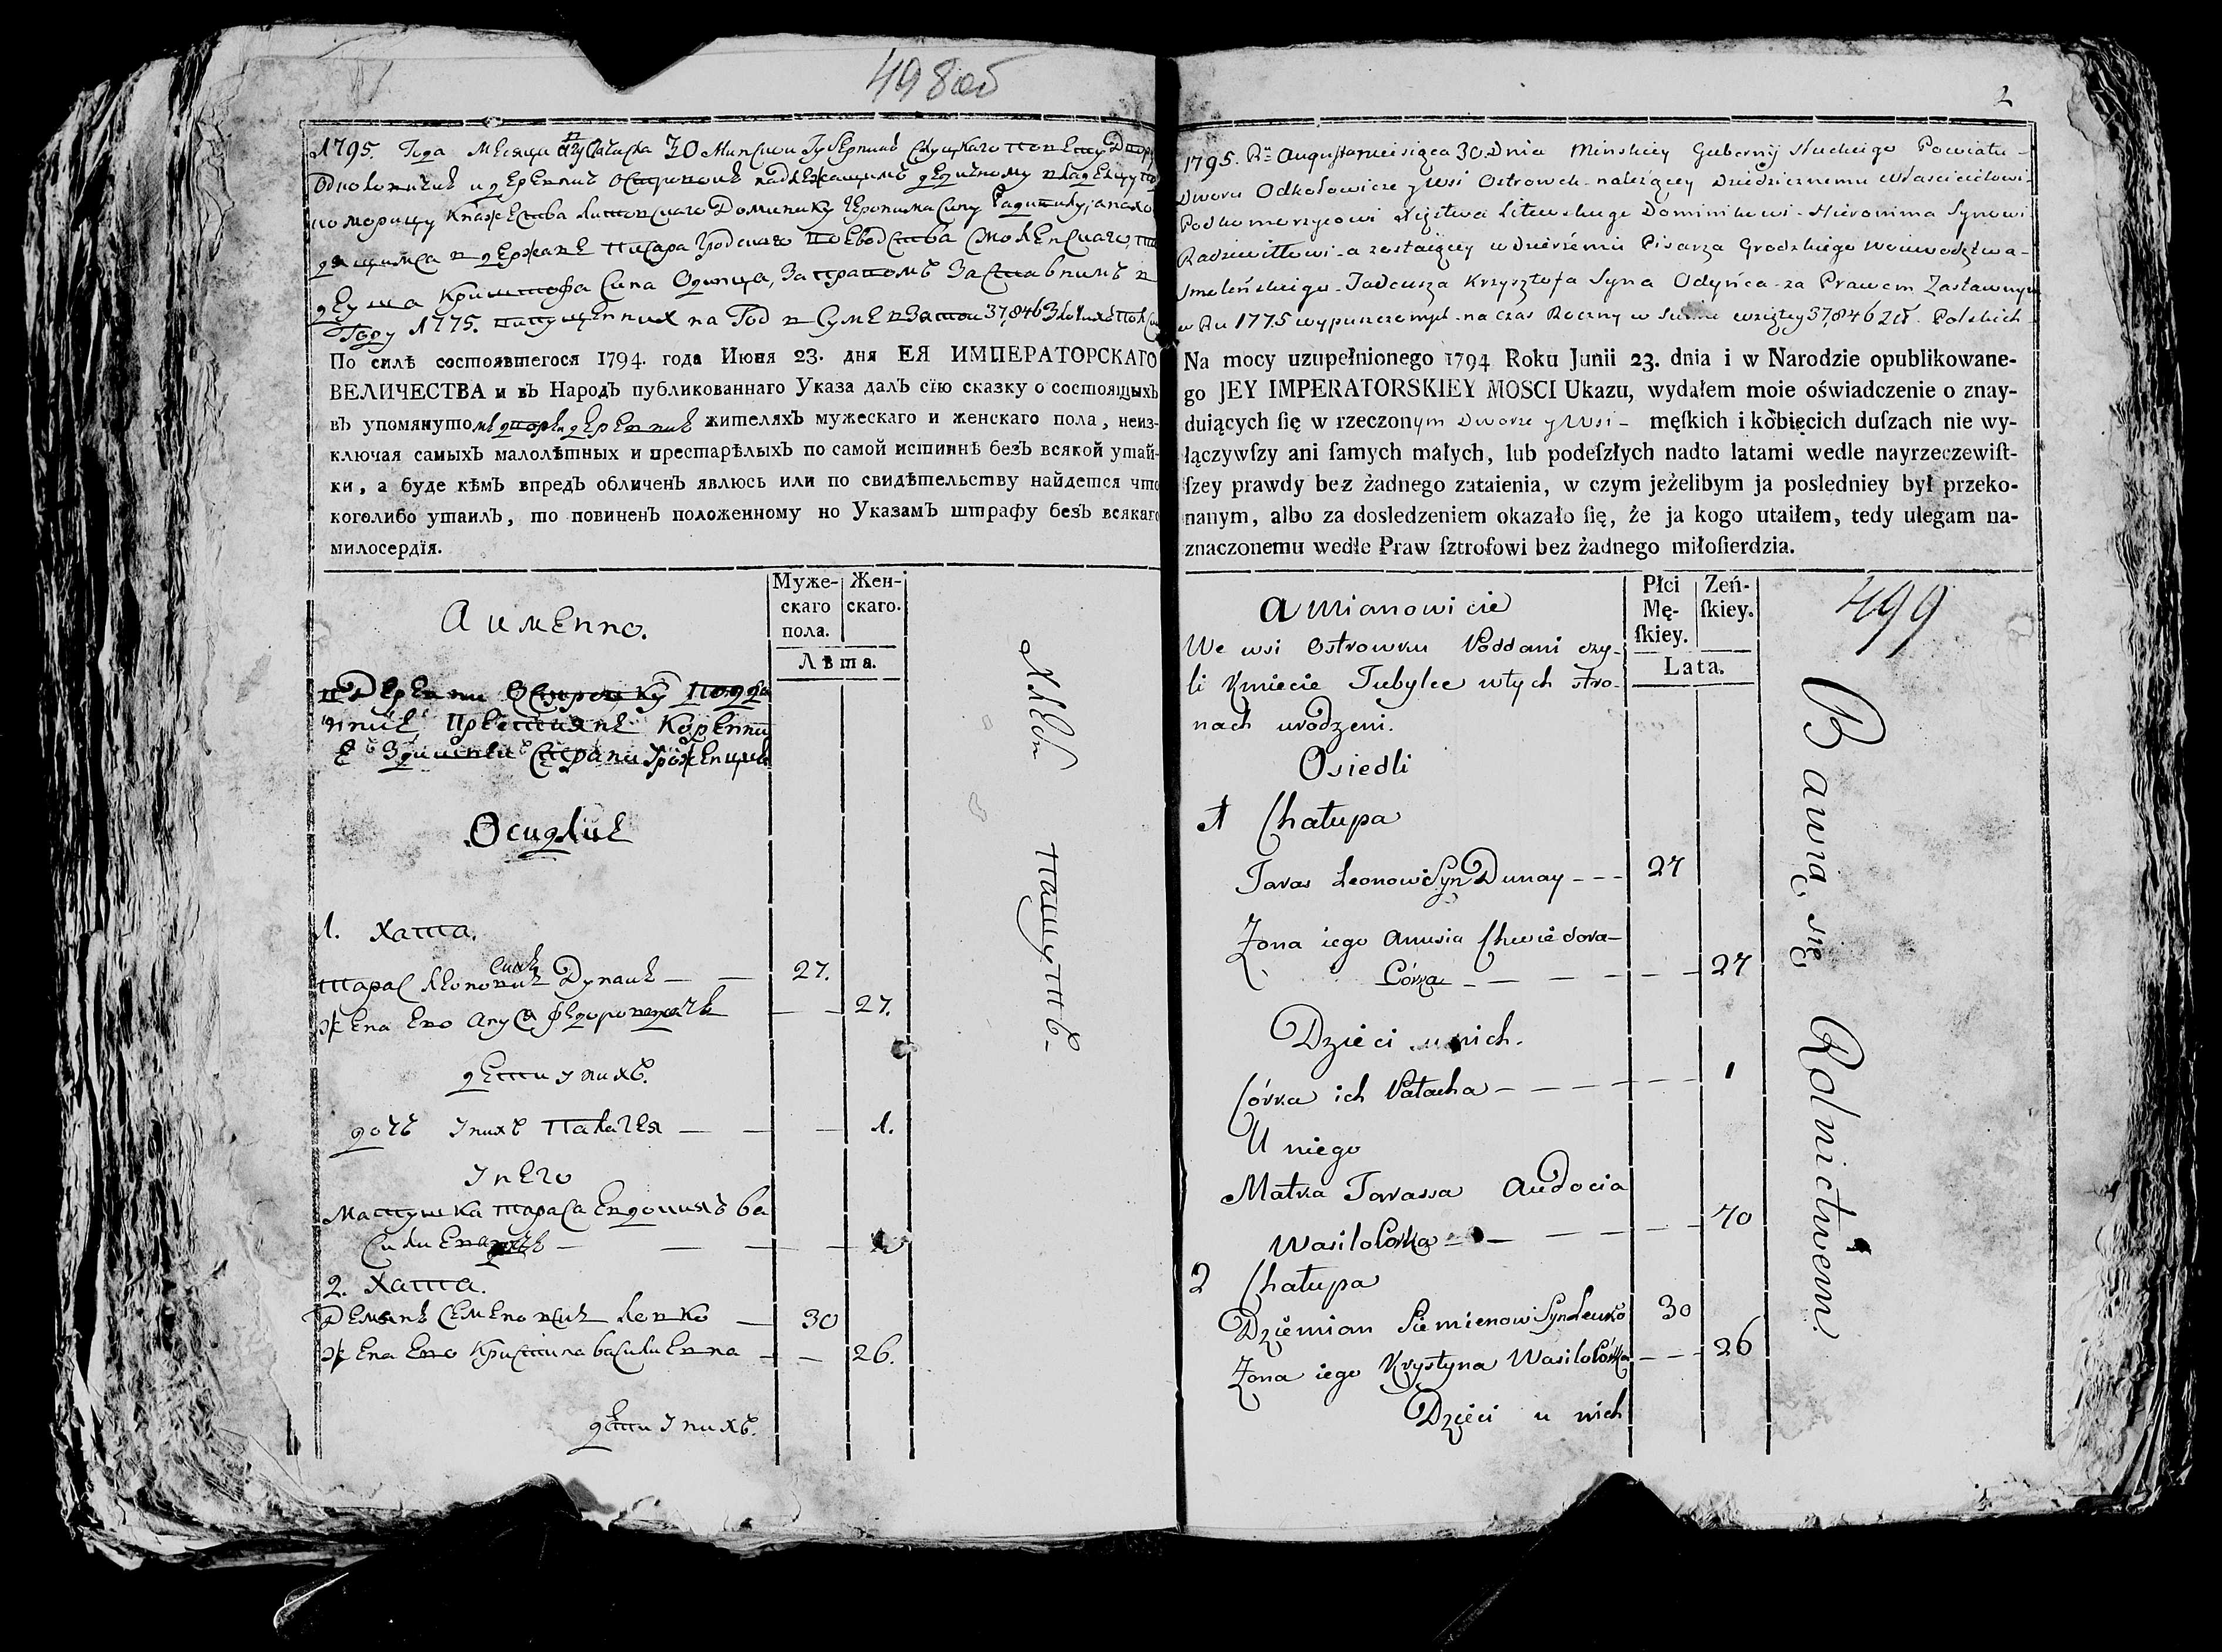 498 об
1795. Года Месяца Августа 30 Минскои Губернии Слуцкаго повету Двору
Одколовичах и деревни Острових надлежащимъ дедичному владельцу под
коморищу Княжества Литовскаго Доминику Героныма сину Радивилу, а нахо
дящимса в держане писара Гродскаго Воеводства Смоленскаго
деуша Криштофа сина Одинца, За правомъ Заставнимъ в
Году 1775. випущенних на Год в Суме взятои 37,846 Злотих Полски
По силѣ состоявшегося 1794. года Июня 23. дня ЕЯ ИМПЕРАТОРСКАГО
ВЕЛИЧЕСТВА и въ Народъ публикованнаго Указа далъ сїю сказку о состоящыхъ
въ упомянутомъ дворе и деревни жителяхъ мужескаго и женскаго пола, неиз-
ключая самыхъ малолѣтныхъ и престарѣлыхъ по самой истиннѣ безъ всякой утай-
ки, а буде кѣмъ впредъ обличенъ явлюсь или по свидѣтельству найдется что
коголибо утаилъ, то повиненъ положенному по Указамъ штрафу безъ всякаго
милосердїя.
Муже-
скаго
пола.
Жен-
скаго.
Лѣта.
А именно.
в Деревни Островку подда
нние, крестияне Коренни
е Здишней Страни Урожении
Осидлие
1. хата.
Тарас Леонов синъ Дунай — — 27.
жена ево Ануся Федорова дочь — — 27.
дети у нихъ.
дочь у нихъ Палагея — — — 1.
у него
Матушка Тараса Евдокия Ва
силиева дочь — — —
2. хата.
Демян Семенов син Левко — 30
жена ево Кристина Василиевна — — 26.
дети у нихъ.
Хлебо пашутъ.
2
1795. Ru Augusta miesiąca 30. Dnia Minskiey Gubernij Słuckiego Powiatu -
Dworu Odkołowicze y Wsi Ostrowek - należącey Dziedzicznemu właścicielowi -
Podkomorzycowi Xięztwa Litewskiego Dominikowi - Hieronima Synowi
Radziwiłłowi - a zostaiącey w Dzierżeniu Pisarza Grodzkiego Woiewodztwa -
Smoleńskiego - Tadeusza Krzysztofa Syna Odyńca - za Prawem Zastawnym
w Ru 1775 wypuszczonych - na czas Roczny w Summie wziętey 37,846 Złł. Polskich
Na mocy uzupełnionego 1794 Roku Junii 23. dnia i w Narodzie opublikowane-
go JEY IMPERATORSKIEY MOSCI Ukazu, wydałem moie oświadczenie o znay-
duiących ſię w rzeczonym Dworze y Wsi - męſkich i kobiecich duſzach nie wy-
łączywſzy ani ſamych małych, lub podeſzłych nadto latami wedle nayrzeczewiſt-
ſzey prawdy bez żadnego zataienia, w czym jeżelibym ja posledniey był przeko-
nanym, albo za dosledzeniem okazało ſię, że ja kogo utaiłem, tedy ulegam na-
znaczonemu wedle Praw ſztrofowi bez żadnego miłoſierdzia.
Płci
Mę-
ſkiey.
Zeń-
ſkiey.
Lata.
499
a mianowicie
We wsi Ostrowku Poddani czy-
li Kmiecie Tubylce w tych stro-
nach urodzeni.
Osiedli
1 Chałupa
Taras Leonow Syn Dunay - - - 27
Żona iego Anusia Chwiedora -
Córka - — — — 27
Dzieci u nich.
Córka ich Pałacha - — — — 1
U niego
Matka Tarassa Audocia
Wasilo Córka - — — — 70
2 Chałupa
Dziemian Siemienow Syn Lewko 30
Żona iego Krystyna Wasilo Córka — — 26
Dzieci u nich
Bawią się Rolnictwem.